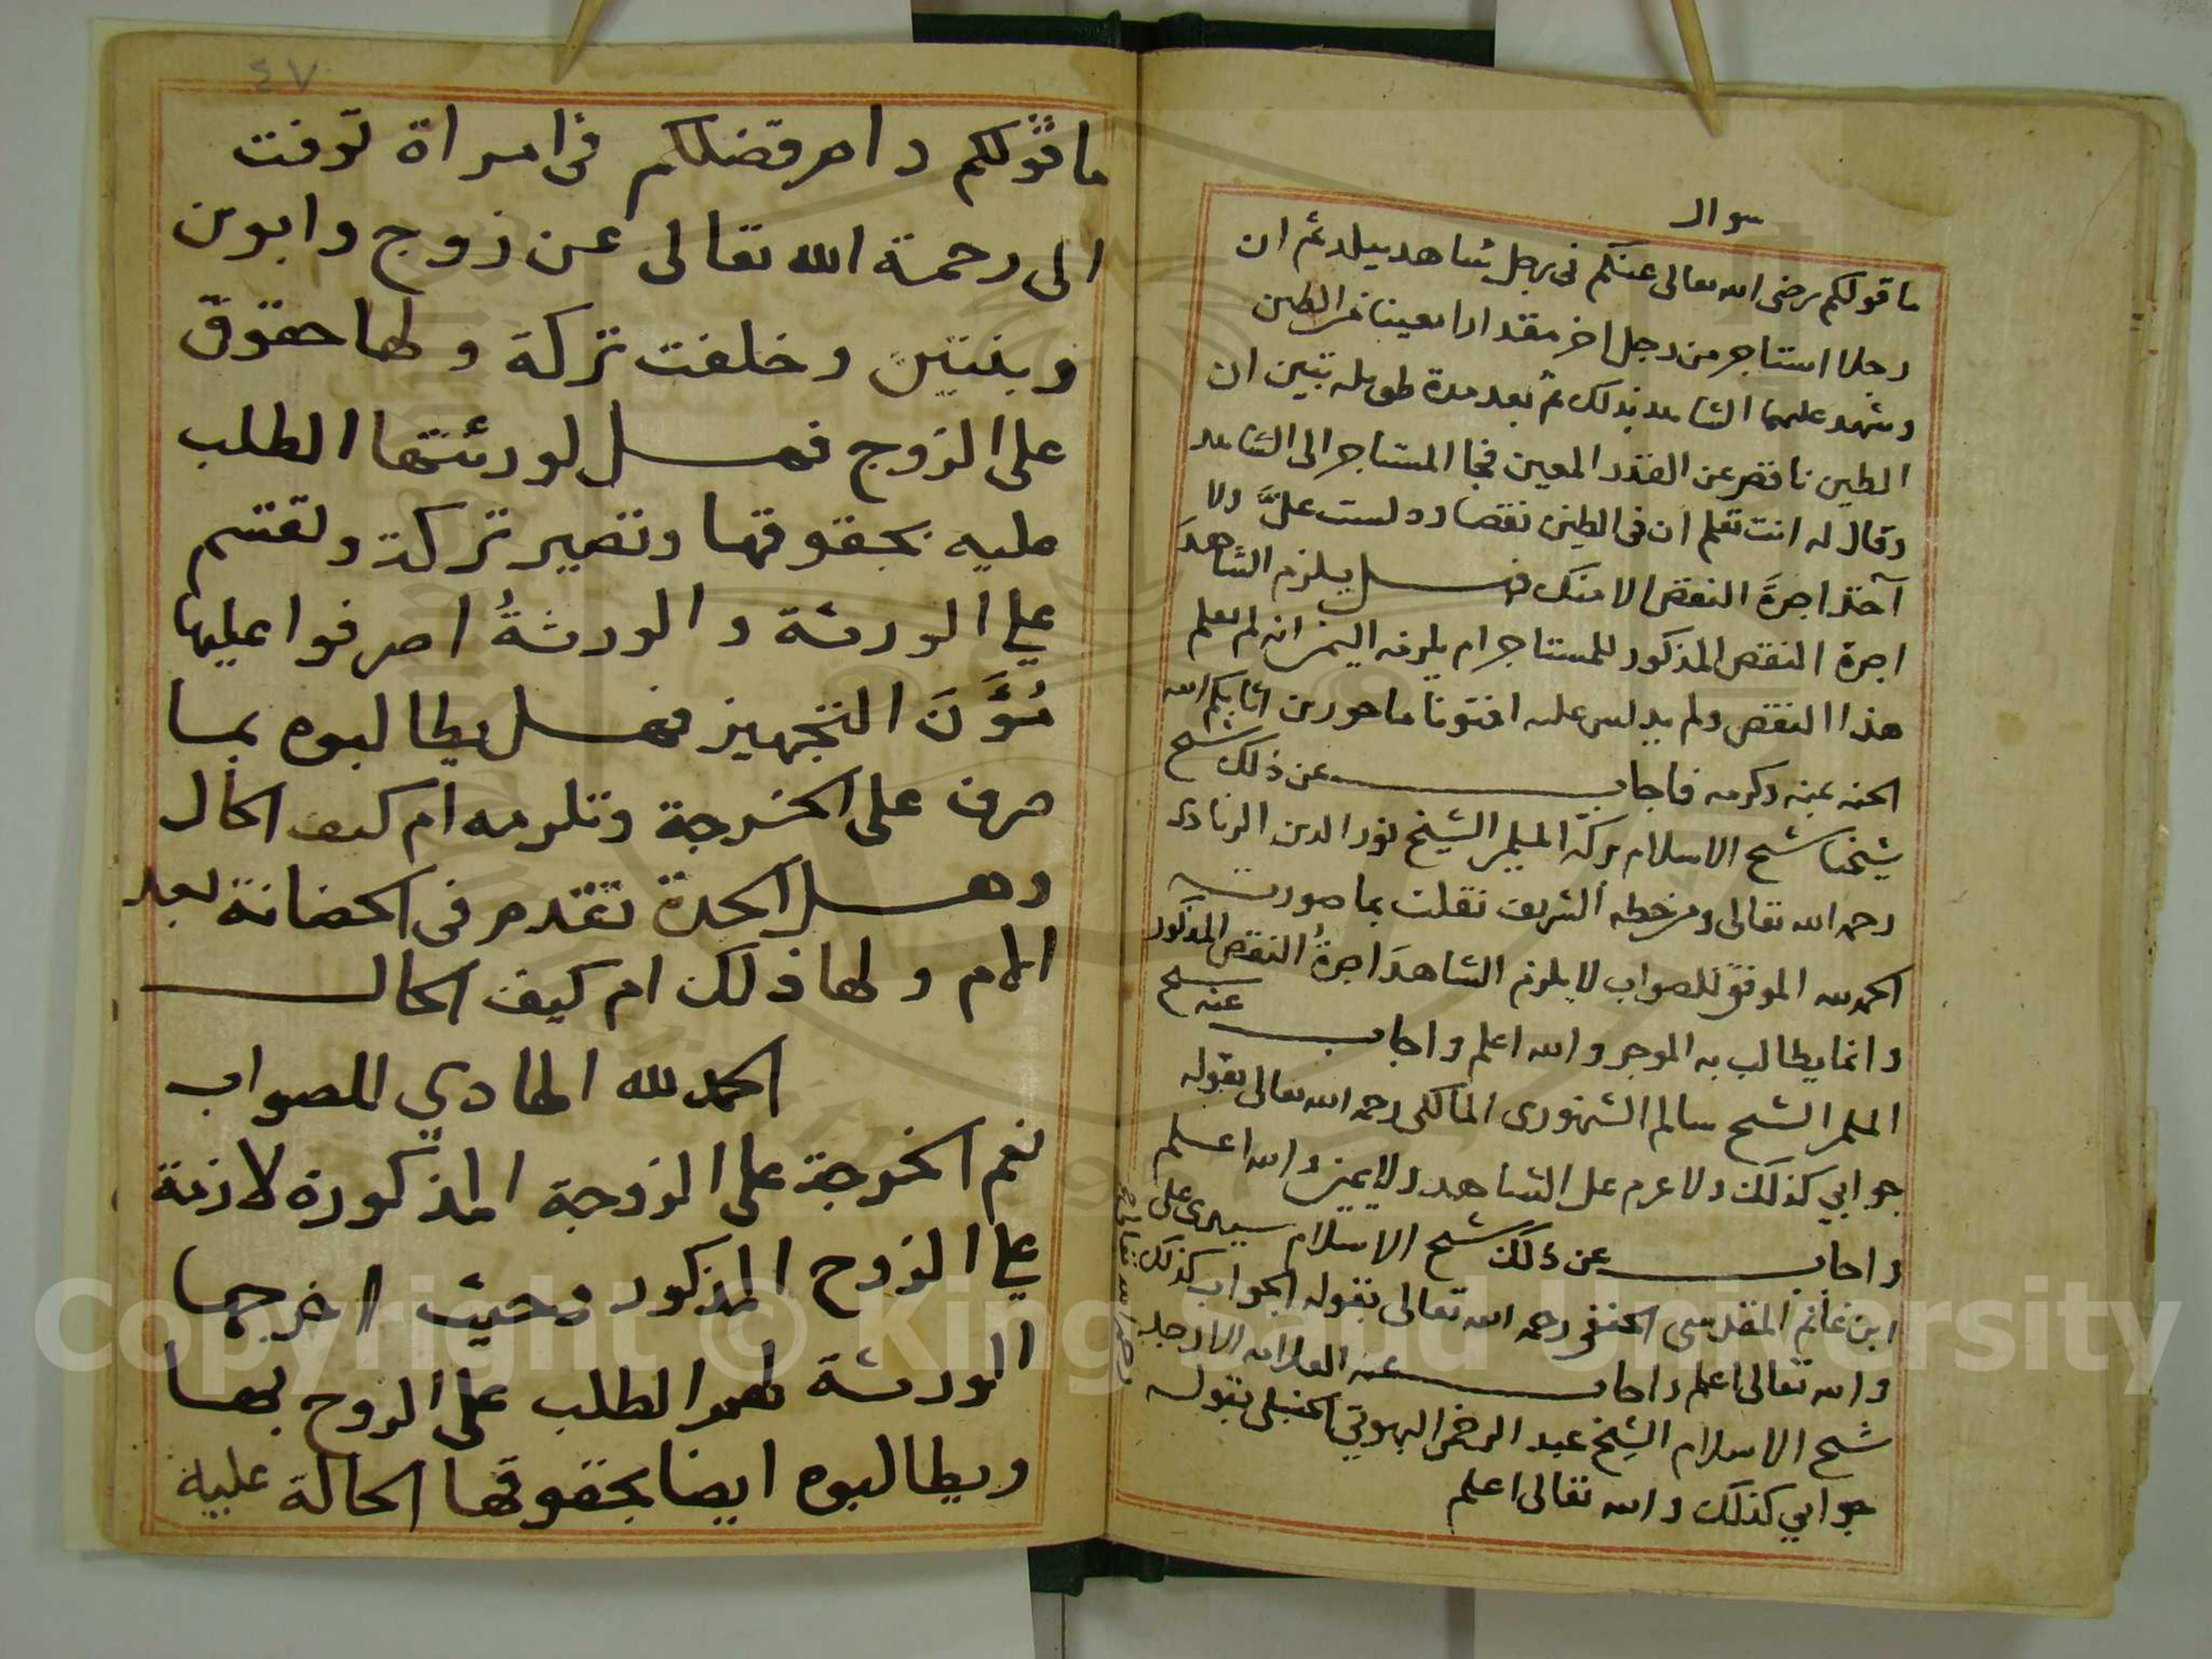 سوال
ما قولكم رضى الله تعالى عنكم فى رجل شاهد ببلد ثم ان
رجلا استاجر من رجل اخر مقدارا معينا من الطين
وشهد عليهما الشاهد بذلك ثم بعد مدة طويله تبين ان
الطين ناقص عن القدر المعين فجا المستاجر الى الشاهد
وقال له انت تعلم ان فى الطين نقصا ودلست علىَّ ولا
آخذ اجرةَ النقص الا منك فهل يلزم الشاهدَ
اجرة النقص المذكور للمستاجر ام يلزمه اليمين انه لم يعلم
هذا النقص ولم يدلس عليه افتونا ماجورين اثابكم الله
الجنه بمنه وكرمه فاجاب عن ذلك شيخ
شيخنا شيخ الاسلام بركة المسلمين الشيخ نور الدين الزيادى
رحمه الله تعالى ومن خطه الشريف نقلت بما صورته
الحمد لله الموفق للصواب لا يلزم الشاهدَ اجرةُ النقص المذكور
وانما يطالب به الموجر والله اعلم واجاب عنه شيخ
المسلمين الشيخ سالم السنهورى المالكى رحمه الله تعالى بقوله
جوابي كذلك ولا غرم على الشاهد ولا يمين والله اعلم
واجاب عن ذلك شيخ الاسلام سيدى على
ابن غانم المقدسى الحنفى رحمه الله تعالى بقوله الجواب كذلك
والله تعالى اعلم واجاب عنه العلامه الاوحد
شيخ الاسلام الشيخ عبد الرحمن البهوتي الحنبلى بقوله
جوابي كذلك والله تعالى اعلم
رحمه الله تعالى
٤٧
ما قولكم دام فضلكم فى امراة توفت
الى رحمة الله تعالى عن زوج وابوين
وبنتين وخلفت تركة ولها حقوق
على الزوج فهل لورثتها الطلب
عليه بحقوقها وتصير تركة وتقسم
علي الورثة والورثةُ اصرفوا عليها
مُؤَنَ التجهيز فهل يطالبوه بما
صرف على الخرجة وتلزمه ام كيف الحال
وهل الجدة تقدم فى الحضانة بعد
الام ولها ذلك ام كيف الحال
الحمد لله الهادي للصواب
نعم الخرجة على الزوجة المذكورة لازمة
علي الزوج المذكور وحيث اخرجها
الورثة لهم الطلب على الزوج بها
ويطالبوه ايضا بحقوقها الحالة عليه